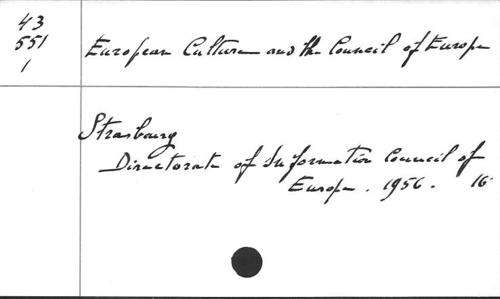 43
551
1
European Culture and the Council of Europe
Strasbourg
Directorate of Information Council of
Europe. 1956. 16